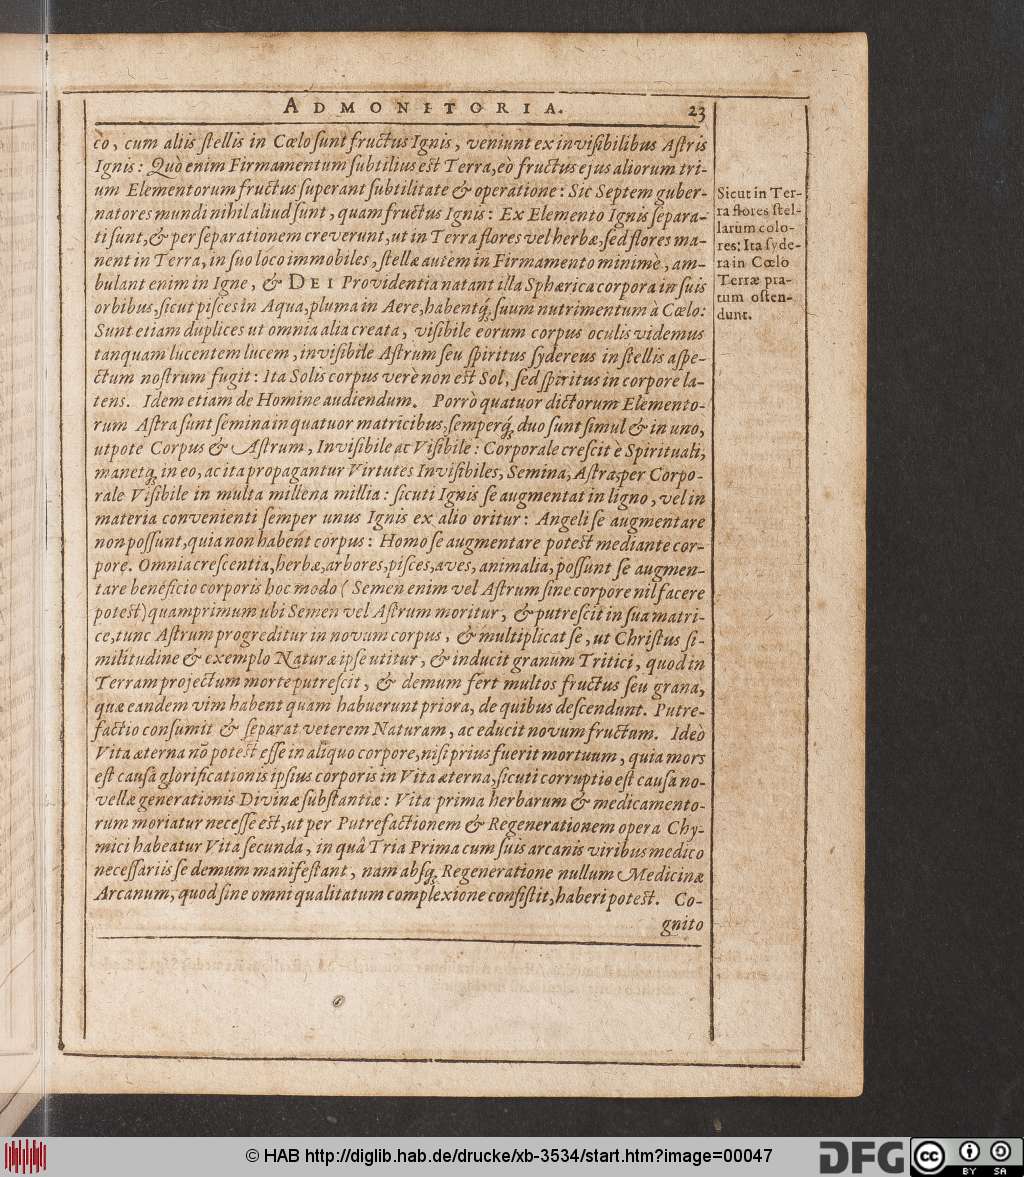 ADMONITORIA. 23
co, cum aliis stellis in Cœlo sunt fructus Ignis, veniunt ex invisibilibus Astris
Ignis: Quò enim Firmamentum subtilius est Terra, eò fructus ejus aliorum tri-
um Elementorum fructus superant subtilitate & operatione: Sic Septem guber-
natores mundi nihil aliud sunt, quam fructus Ignis: Ex Elemento Ignis separa-
ti sunt, & per separationem creverunt, ut in Terra flores vel herbæ, sed flores ma-
nent in Terra, in suo loco immobiles, stellæ autèm in Firmamento minimè, am-
bulant enim in Igne, & DEI Providentia natant illa Sphærica corpora in suis
orbibus, sicut pisces in Aqua, pluma in Aere, habentq́; suum nutrimentum à Cœlo:
Sunt etiam duplices ut omnia alia creata, visibile eorum corpus oculis videmus
tanquam lucentem lucem, invisibile Astrum seu spiritus sydereus in stellis aspe-
ctum nostrum fugit: Ita Solis corpus verè non est Sol, sed spiritus in corpore la-
tens. Idem etiam de Homine audiendum. Porrò quatuor dictorum Elemento-
rum Astra sunt semina in quatuor matricibus, semperq́; duo sunt simul & in uno,
utpote Corpus & Astrum, Invisibile ac Visibile: Corporale crescit è Spirituali,
manetq; in eo, ac ita propagantur Virtutes Invisibiles, Semina, Astra, per Corpo-
rale Visibile in multa millena millia: sicuti Ignis se augmentat in ligno, vel in
materia convenienti semper unus Ignis ex alio oritur: Angeli se augmentare
non possunt, quia non habent corpus: Homo se augmentare potest mediante cor-
pore. Omnia crescentia, herbæ, arbores, pisces, aves, animalia, possunt se augmen-
tare beneficio corporis hoc modo (Semen enim vel Astrum sine corpore nil facere
potest) quamprimum ubi Semen vel Astrum moritur, & putrescit in sua matri-
ce, tunc Astrum progreditur in novum corpus, & multiplicat se, ut Christus si-
militudine & exemplo Naturæ ipse utitur, & inducit granum Tritici, quod in
Terram projectum morte putrescit, & demum fert multos fructus seu grana,
quæ eandem vim habent quam habuerunt priora, de quibus descendunt. Putre-
factio consumit & separat veterem Naturam, ac educit novum fructum. Ideò
Vita æterna nō potest esse in aliquo corpore, nisi prius fuerit mortuum, quia mors
est causa glorificationis ipsius corporis in Vita æterna, sicuti corruptio est causa no-
vellæ generationis Divinæ substantiæ: Vita prima herbarum & medicamento-
rum moriatur necesse est, ut per Putrefactionem & Regenerationem opera Chy-
mici habeatur Vita secunda, in quâ Tria Prima cum suis arcanis viribus medico
necessariis se demum manifestant, nam absq; Regeneratione nullum Medicinæ
Arcanum, quod sine omni qualitatum complexione consistit, haberi potest. Co-
gnito
Sicut in Ter-
ra flores stel-
larum colo-
res: Ita syde-
ra in Cœlo
Terræ pra-
tum osten-
dunt.
© HAB http://diglib.hab.de/drucke/xb-3534/start.htm?image=00047
DFG
cc BY SA